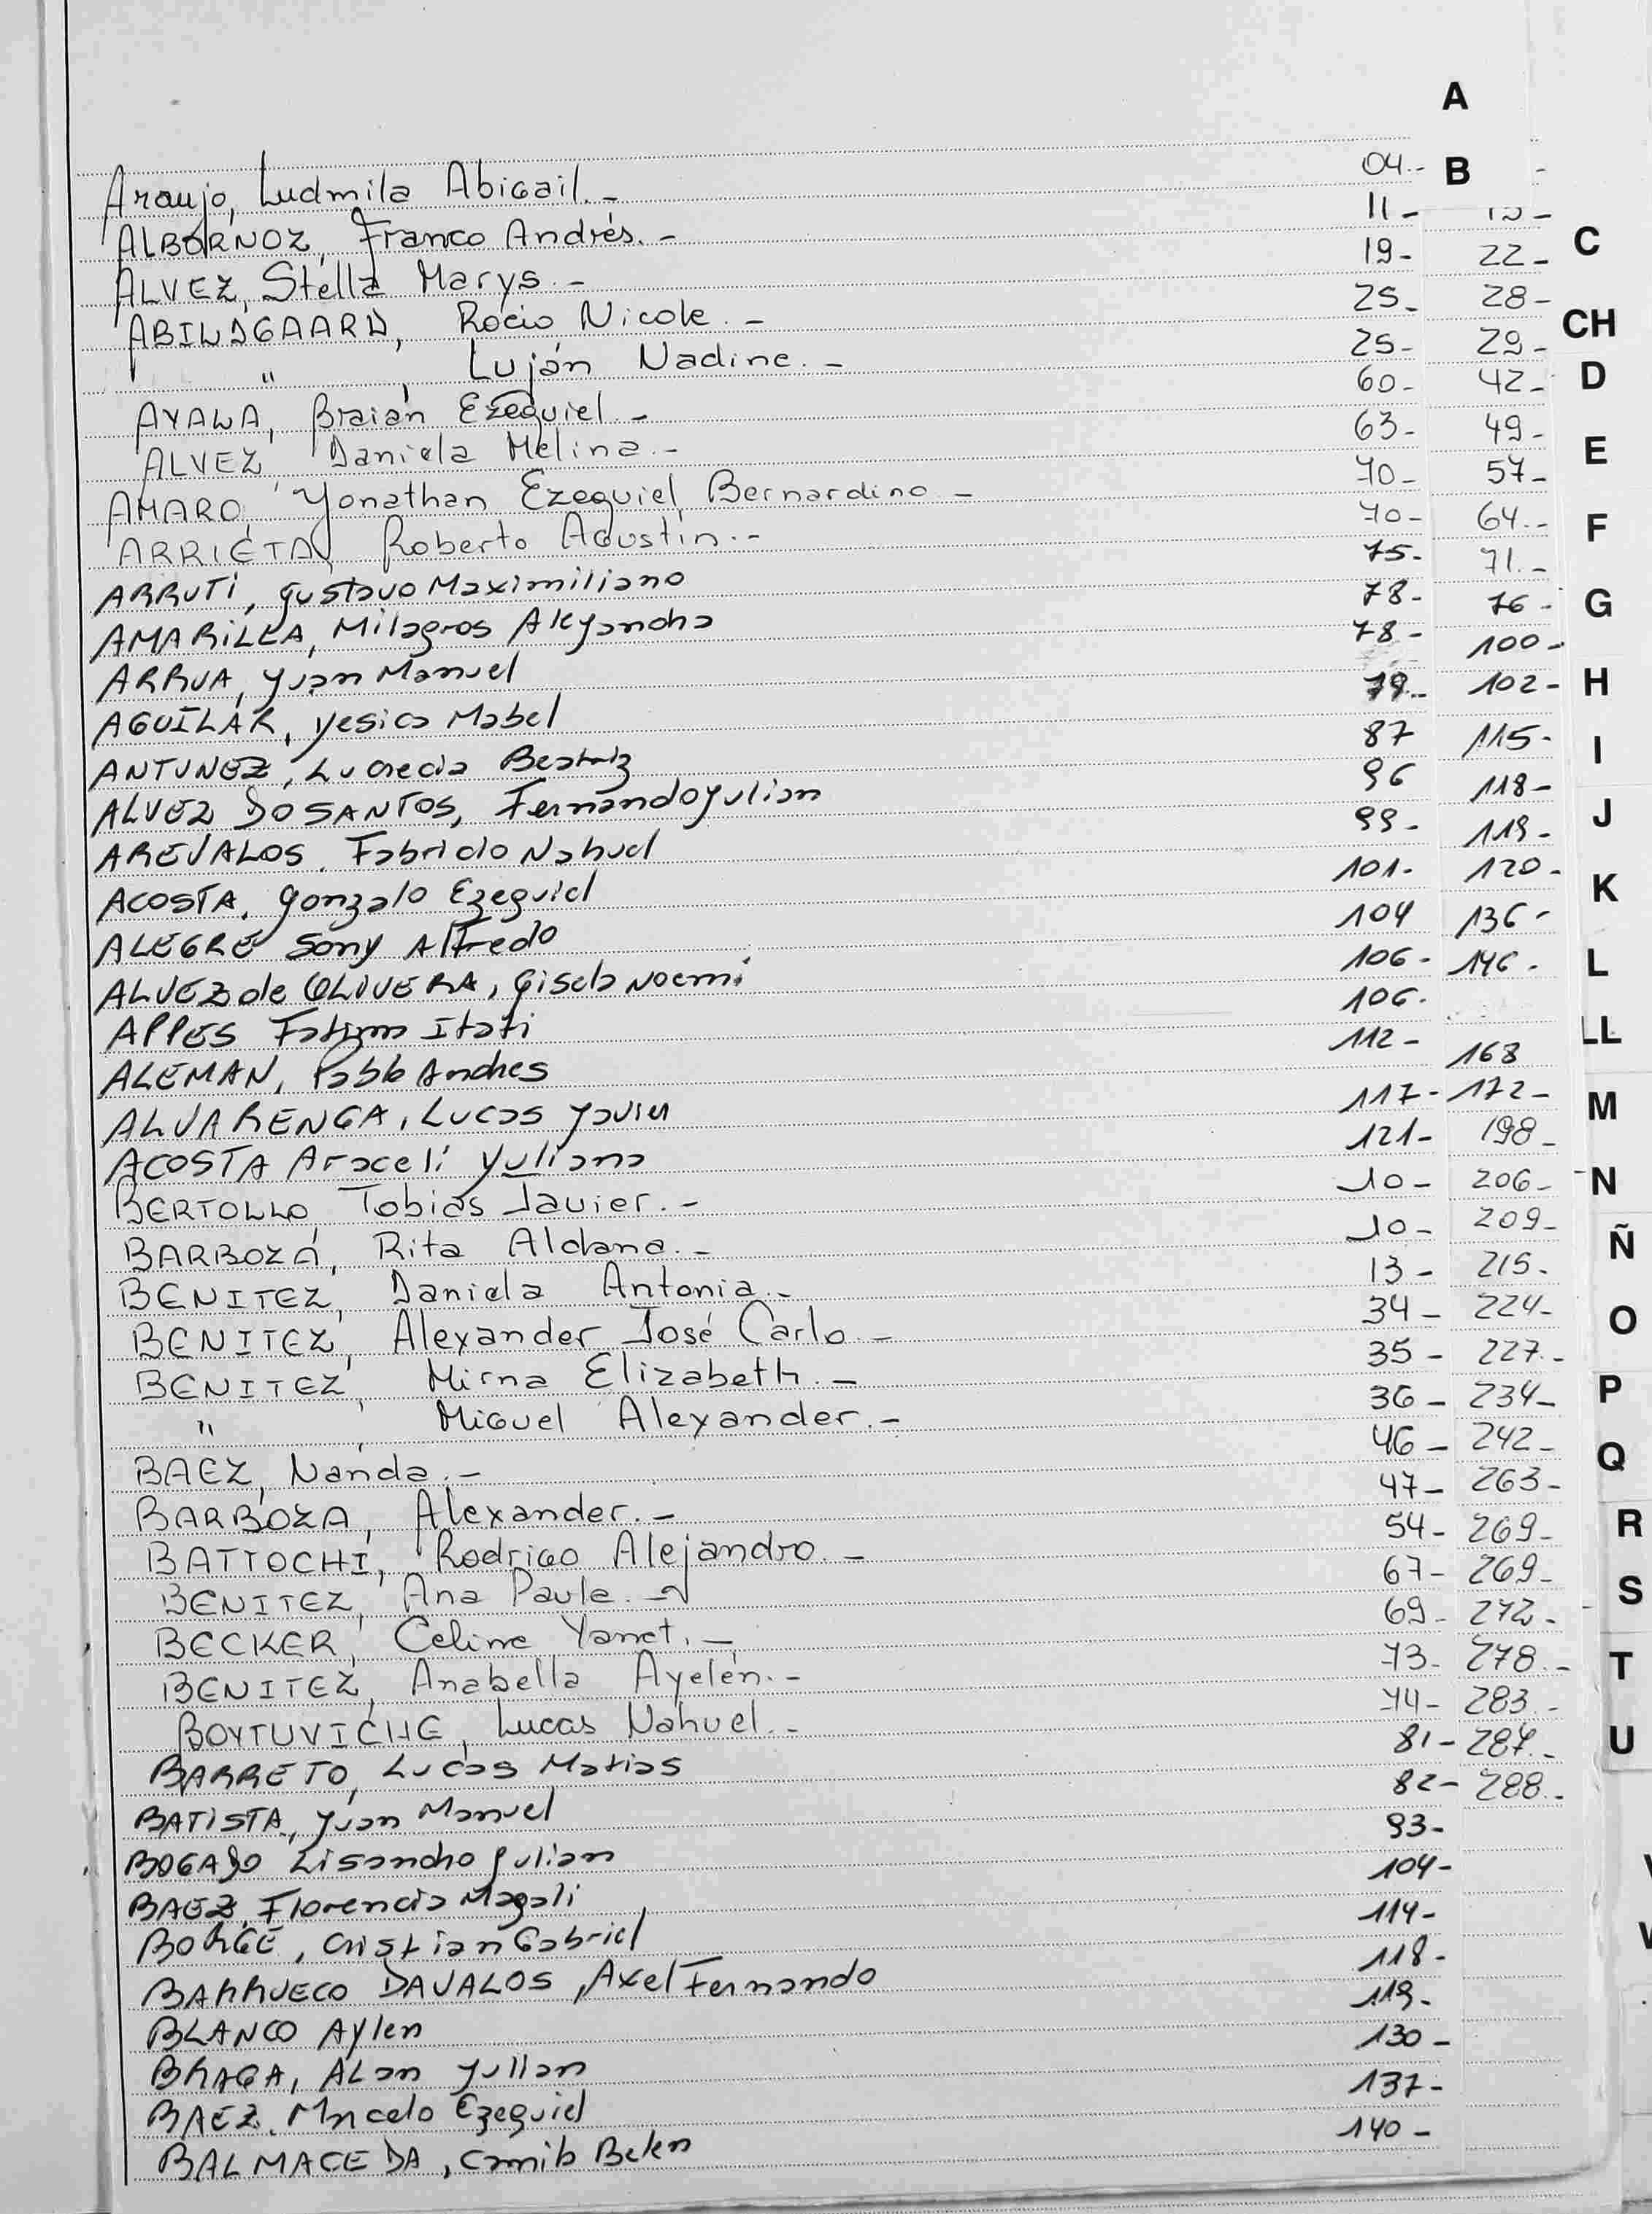 A
Araujo, Ludmila Abigail.- 04.- B
ALBORNOZ, Franco Andrés.- 11-
ALVEZ, Stella Marys.- 19- 22- C
ABILDGAARD, Rocio Nicole.- 25- 28-
CH
" , Luján Nadine.- 25- 29-
AYALA, Braian Ezequiel.- 60- 42- D
ALVEZ, Daniela Melina.- 63- 49-
E
AMARO, Yonathan Ezequiel Bernardino- 70- 57-
ARRIETA, Roberto Agustin.- 70- 64.- F
ARRUTI, Gustavo Maximiliano 75- 71.-
AMARILLA, Milagros Alejandra 78- 76- G
ARRUA, Juan Manuel 78- 100-
AGUILAR, Yesica Mabel 79.- 102- H
ANTUNEZ, Lucrecia Beatriz 87 115-
I
ALVEZ DOSANTOS, Fernando Julian 96 118-
AREVALOS, Fabricio Nahuel 99- 119- J
ACOSTA, Gonzalo Ezequiel 101- 120-
K
ALEGRE Sony Alfredo 104 136-
ALVEZ de OLIVERA, Gisela Noemi 106- 146- L
APPES Fatima Itati 106.
LL
ALEMAN, Pablo Andres 112- 168
ALVARENGA, Lucas Javier 117- 172- M
ACOSTA Araceli Yuliana 121- 198-
BERTOLLO, Tobias Javier.- 10- 206- N
BARBOZA, Rita Aldana.- 10- 209-
Ñ
BENITEZ, Daniela Antonia.- 13- 215.
BENITEZ, Alexander José Carlo- 34- 224-
O
BENITEZ, Mirna Elizabeth.- 35- 227.-
" , Miguel Alexander.- 36- 234- P
BAEZ, Nanda.- 46- 242-
Q
BARBOZA, Alexander.- 47- 263-
BATTOCHI, Rodrigo Alejandro.- 54- 269- R
BENITEZ, Ana Paula.- 67- 269-
S
BECKER, Celine Yanet.- 69- 272-
BENITEZ, Anabella Ayelén.- 73- 278.- T
BOYTUVICHE, Lucas Nahuel.- 74- 283.-
BARRETO, Lucas Matias 81- 287.- U
BATISTA, Juan Manuel 82- 288.-
BOGADO Lisandro Julian 93-
BAEZ, Florencia Magali 104-
BORGE, Cristian Gabriel 114-
BARRUECO DAVALOS, Axel Fernando 118-
BLANCO Aylen 119-
BRAGA, Alan Julian 130-
BAEZ, Marcelo Ezequiel 137-
BALMACEDA, Camila Belen 140-